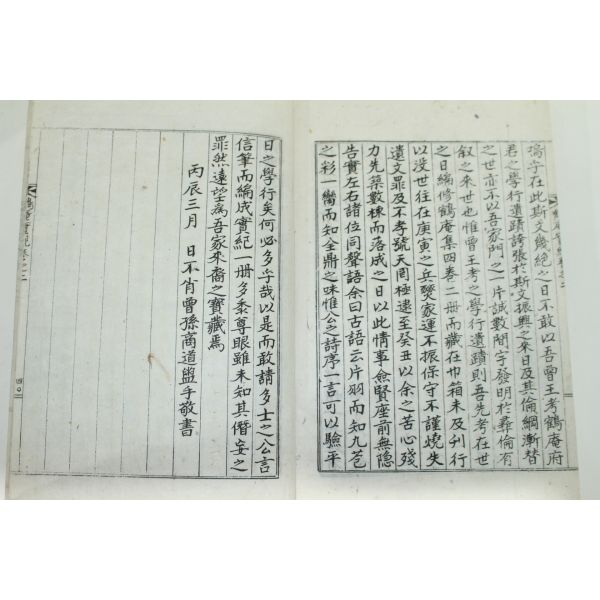 嗚乎在此斯文幾絶之日不敢以吾曾王考鶴庵府
君之學行遺蹟誇張於斯文振興之來日及其倫綱漸替
之世亦不以吾家門之一片誠數間字發明於彛倫有
叙之來世也惟曾王考之學行遺蹟則吾先考在世
之日編修鶴庵集四卷二册而藏在巾箱未及刋行
以没世往在庚寅之兵燹家運不振保守不謹燒失
遺文罪及不孝號天罔極逮至癸丑以余之苦心殘
力先築數棟而落成之日以此情事僉賢座前無隱
告實左右諸位同聲語余曰古語云片羽而知九苞
之彩一臠而知全鼎之味惟公之詩序一言可以驗平
日之學行矣何必多乎哉以是而敢請多士之公言
信筆而編成實紀一册多黍尊眼雖未知其僭妄之
罪然遠望爲吾家來裔之寶藏焉
丙辰三月 日不肖曾孫商道盥手敬書